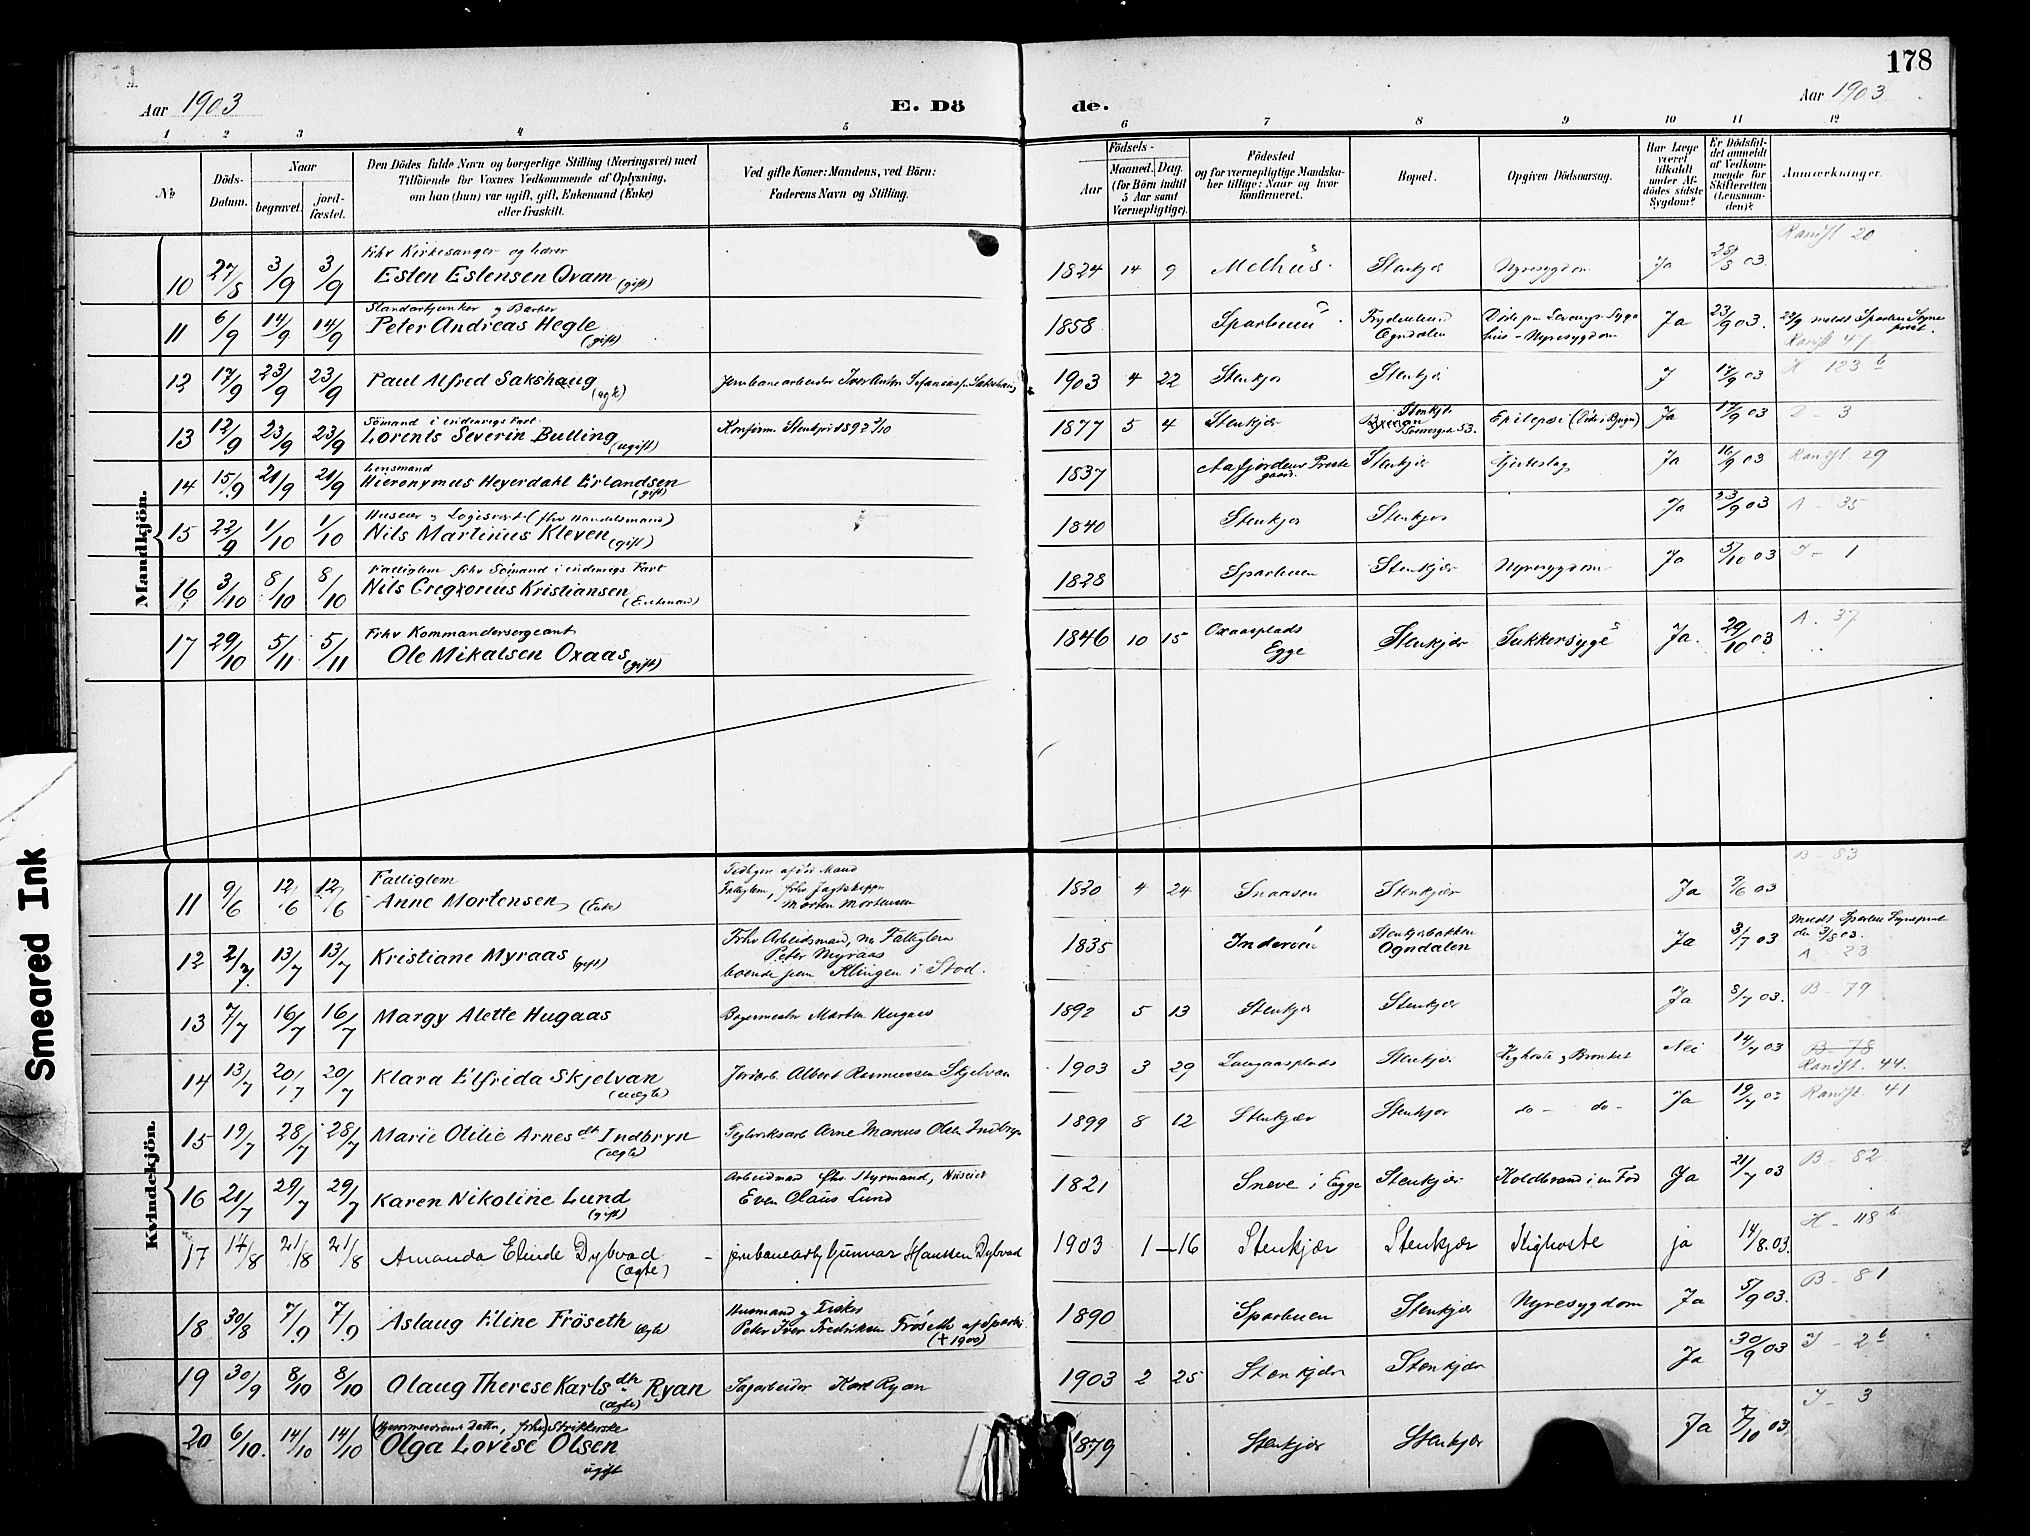 178
Aar 1903
E. Dö
de.
Aar 1903
1 2 3 4 5 6 7 8 9 10 11 12
No
Döds-Datum.
Naar
begravet.
jord-fæstet.
Den Dödes fulde Navn og borgerlige Stilling (Næringsvei) med
Tilföiende for Voxnes Vedkommende af Oplysning,
om han (hun) var ugift, gift, Enkemand (Enke)
eller fraskilt.
Ved gifte Koner: Mandens, ved Börn:
Faderens Navn og Stilling.
Födsels-
Aar
Maaned.
Dag.
(for Börn indtil
5 Aar samt
Værnepligtige).
Födested
og for værnepligtige Mandska-
ber tillige: Naar og hvor
konfirmeret.
Bopæl.
Opgiven Dödsaarsag.
Har Læge
været
tilkaldt
under Af-
dödes sidste
Sygdom?
Er Dödsfal-
det anmeldt
af Vedkom-
mende for
Skifteretten
(Lensman-
den)?
Anmærkninger.
Mandkjön.
10 27/8 3/9 3/9 Frhv Kirkesanger og lærer
Esten Estensen Qvam (gift) 1824 14 9 Melhus. Stenkjær Nyresygdom Ja 28/8 03. Ranist 20
11 6/9 14/9 14/9 Standartjunker og Barber
Peter Andreas Hegle (gift) 1858 Sparbuen Frydenlund Ogndalen Nyresygdom Ja 23/9 03. 23/9 meldt Sparbu Sogneprest. Ranist 47
12 17/9 23/9 23/9 Paul Alfred Sakshaug (ægte) Jernbanearbeider Iver Anton Sakshaug 1903 4 22 Stenkjær Stenkjær J 17/9 03 H 123 b
13 12/9 23/9 23/9 Sömand i indenrigs Fart
Lorents Severin Bulling (ugift) Konfirm. Stenkjær 1892 2/10 1877 5 4 Stenkjær Stenkjær Epilepsi Ja 17/9 03 D - 3
14 15/9 21/9 21/9 Lensmand
Hieronymus Heyerdahl Erlandsen (gift) 1837 Aafjordens Prestegaard. Stenkjær Hjerteslag Ja 16/9 03 Ranist 29
15 22/9 1/10 1/10 Huseier og Logivert (frhv Handelsmand)
Nils Martinus Kleven (gift) 1840 Stenkjær Stenkjær Ja 23/9 03 A - 35
16 3/10 8/10 8/10 Fattiglem frhv Sömand i indenrigs Fart
Nils Gregorius Kristiansen (Enkemand) 1828 Sparbuen Stenkjær Nyresygdom Ja 5/10 03 I - 1
17 29/10 5/11 5/11 Frhv Kommandersergeant
Ole Mikalsen Oxaas (gift) 1846 10 15 Oxaasplads Egge Stenkjær Sukkersyge Ja. 29/10 03 A. 37
Kvindekjön.
11 9/6 12/6 12/6 Fattiglem
Anne Mortensen (Enke) Fattiglem, frhv Jagtskipper Morten Mortensen 1820 4 24 Snaasen Stenkjær Ja 9/6 03 B - 83
12 2/7 13/7 13/7 Kristiane Myraas (gift) Frhv Arbeidsmand, nu Fattiglem
Peter Myraas
boende paa Klingen i Stod. 1835 Inderøen Stenkjærbakken Ogndalen Ja 3/7 03 Meldt Sparbu Sogneprest den 3/8 03. A - 23
13 7/7 16/7 16/7 Margy Alette Hugaas Bagermester Martin Hugaas 1892 5 13 Stenkjær Stenkjær Ja 8/7 03. B - 79
14 13/7 20/7 20/7 Klara Elfrida Skjelvan (uægte) Jordarb. Albert Rasmussen Skjelvan 1903 3 29 Stenkjær Kighoste og Bronket Nei 14/7 03 B - 78 Ranist. 44.
15 19/7 28/7 28/7 Marie Otilie Arnesdt Indbryn (ægte) Teglverksarb Arne Marcus Olsen Indbryn 1899 8 12 Stenkjær Stenkjær do - do - Ja 19/7 03 Ranist. 41
16 21/7 29/7 29/7 Karen Nikoline Lund (gift) Arbeidmand frhv Styrmand, Huseier
Even Olaus Lund 1821 Sneve i Egge Stenkjær Koldbrand i en Fod Ja 21/7 03 B - 82
17 14/8 21/8 21/8 Amanda Elinde Dybvad (ægte) jernbanearb Gunnar Hansen Dybvad 1903 1 - 16 Stenkjær Stenkjær Kighoste ja 14/8 03. H - 118 b
18 30/8 7/9 7/9 Aslaug Eline Fröseth ægte Husmand og Fisker
Peter Iver Fredriksen Fröseth af Sparbu (+ 1900) 1890 Sparbuen Stenkjær Nyresygdom Ja 5/9 03. B - 81
19 30/9 8/10 8/10 Olaug Therese Karlsdtr Ryan (ægte) Sagarbeider Karl Ryan 1903 2 25 Stenkjær Stenkjær Ja 30/9 03 I - 2 b
20 6/10. 14/10 14/10 Hjemmeværende Datter, frhv Strikkerske
Olga Lovise Olsen ugift 1879 Stenkjær Stenkjær Ja 7/10 03 I - 3
Smeared Ink